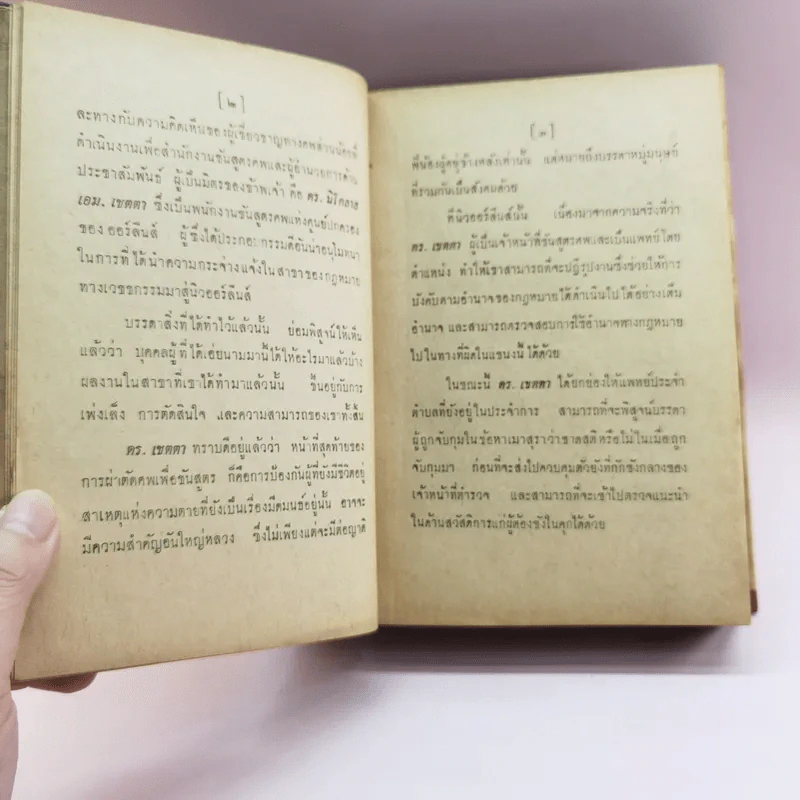 [ ๒ ]
ละทางกับความคิดเห็นของผู้เชี่ยวชาญทางศพส่วนน้อยที่
ดำเนินงานเพื่อสำนักงานชันสูตรศพและผู้อำนวยการด้าน
ประชาสัมพันธ์ ผู้เป็นมิตรของข้าพเจ้า คือ ดร. นิโคลาส
เอม. เชตตา ซึ่งเป็นพนักงานชันสูตรศพแห่งศูนย์ปกครอง
ของ ออร์ลีนส์ ผู้ซึ่งได้ประกอบกรรมดีอันน่าอนุโมทนา
ในการที่ได้นำความกระจ่างแจ้งในสาขาของกฎหมาย
ทางเวชชกรรมมาสู่นิวออร์ลีนส์
บรรดาสิ่งที่ได้ทำไว้แล้วนั้น ย่อมพิสูจน์ให้เห็น
แล้วว่า บุคคลผู้ที่ได้เอ่ยนามมานี้ได้ให้อะไรมาแล้วบ้าง
ผลงานในสาขาที่เขาได้ทำมาแล้วนั้น ขึ้นอยู่กับการ
เพ่งเล็ง การตัดสินใจ และความสามารถของเขาทั้งสิ้น
ดร. เชตตา ทราบดีอยู่แล้วว่า หน้าที่สุดท้ายของ
การผ่าตัดศพเพื่อชันสูตร ก็คือการป้องกันผู้ที่ยังมีชีวิตอยู่
สาเหตุแห่งความตายที่ยังเป็นเรื่องมืดมนธ์อยู่นั้น อาจจะ
มีความสำคัญอันใหญ่หลวง ซึ่งไม่เพียงแต่จะมีต่อญาติ
[ ๓ ]
พี่น้องผู้อยู่ข้างหลังเท่านั้น แต่หมายถึงบรรดาหมู่มนุษย์
ที่รวมกันเป็นสังคมด้วย
ที่นิวออร์ลีนส์นั้น เนื่องมาจากความจริงที่ว่า
ดร. เชตตา ผู้เป็นเจ้าหน้าที่ชันสูตรศพและเป็นแพทย์โดย
ตำแหน่ง ทำให้เขาสามารถที่จะปฏิรูปงานซึ่งช่วยให้การ
บังคับตามอำนาจของกฎหมายได้ดำเนินไปได้อย่างเต็ม
อำนาจ และสามารถตรวจสอบการใช้อำนาจทางกฎหมาย
ไปในทางที่ผิดในแขนงนี้ได้ด้วย
ในขณะนี้ ดร. เชตตา ได้ยกย่องให้แพทย์ประจำ
ตำบลที่ยังอยู่ในประจำการ สามารถที่จะพิสูจน์บรรดา
ผู้ถูกจับกุมในข้อหาเมาสุราว่าขาดสติหรือไม่ในเมื่อถูก
จับกุมมา ก่อนที่จะส่งไปควบคุมตัวยังที่กักขังกลางของ
เจ้าหน้าที่ตำรวจ และสามารถที่จะเข้าไปตรวจแนะนำ
ในด้านสวัสดิการแก่ผู้ต้องขังในคุกได้ด้วย